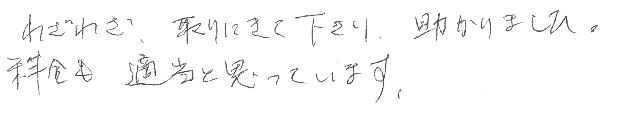 わざわざ、取りにきて下さり、助かりました。
料金も適当と思っています。